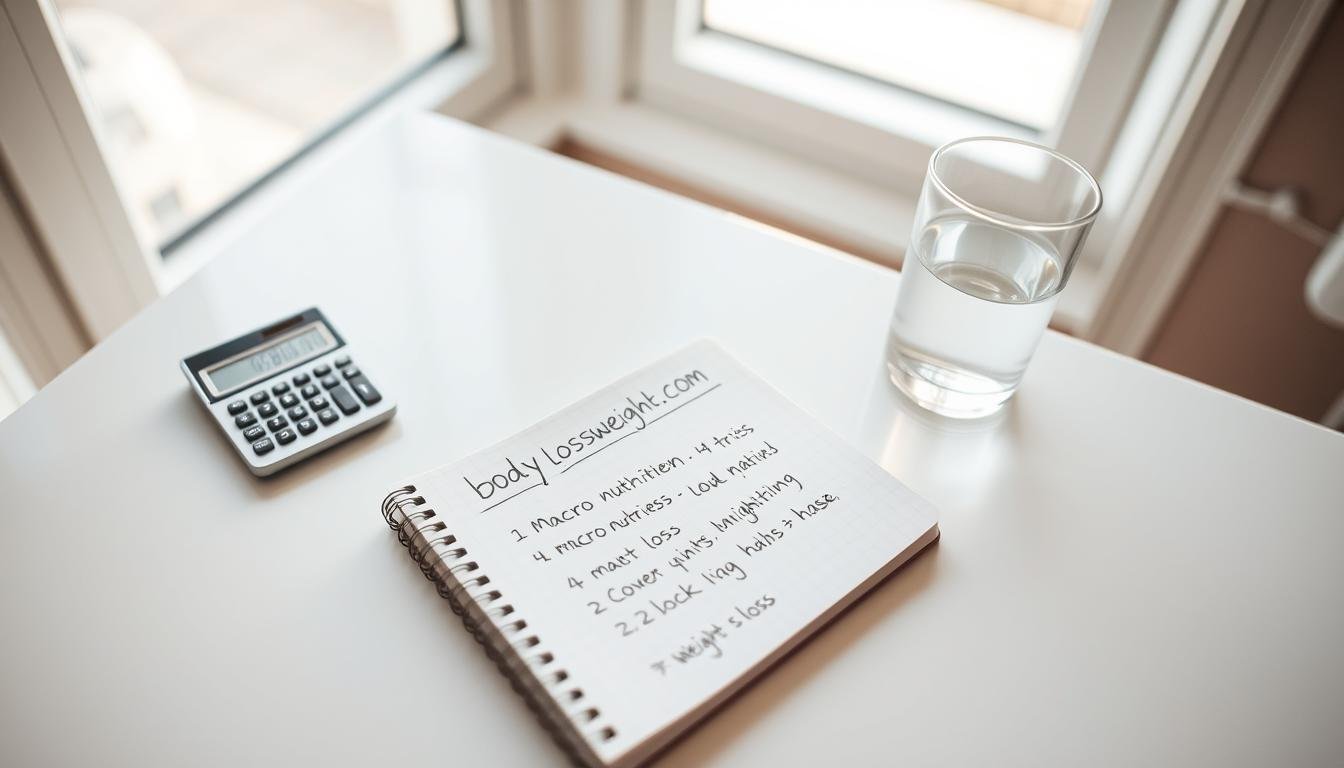 body lossweight.com
1 Macro nuthitien. 14 triss
4 mcro nutriess - loul natiusl
4 mast loss
2 Cover yinits,
2.2 lock ling haths + hase,
weight s loss